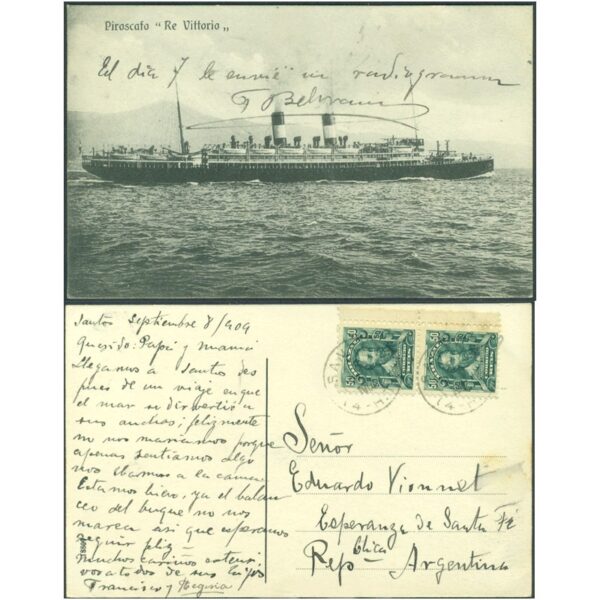 Piroscafo "Re Vittorio„
El dia 7 le envié un radiograma
F Beltramin
Santos Septiembre 8/909
Querido: Papá y mamá
Llegamos a Santos des
pues de un viaje en que
el mar se divertió a
sus anchas; felizmente
no nos mareamos porque
apenas sentiamos algo
nos ibamos a la cama
Estamos bien, ya el balan
ceo del buque no nos
marea asi que esperamos
seguir feliz
muchos cariños
vos a todos de sus hijos
Francisco y
SAN
Señor
Eduardo Vionnet
Esperanza de Santa Fé
Repca Argentina